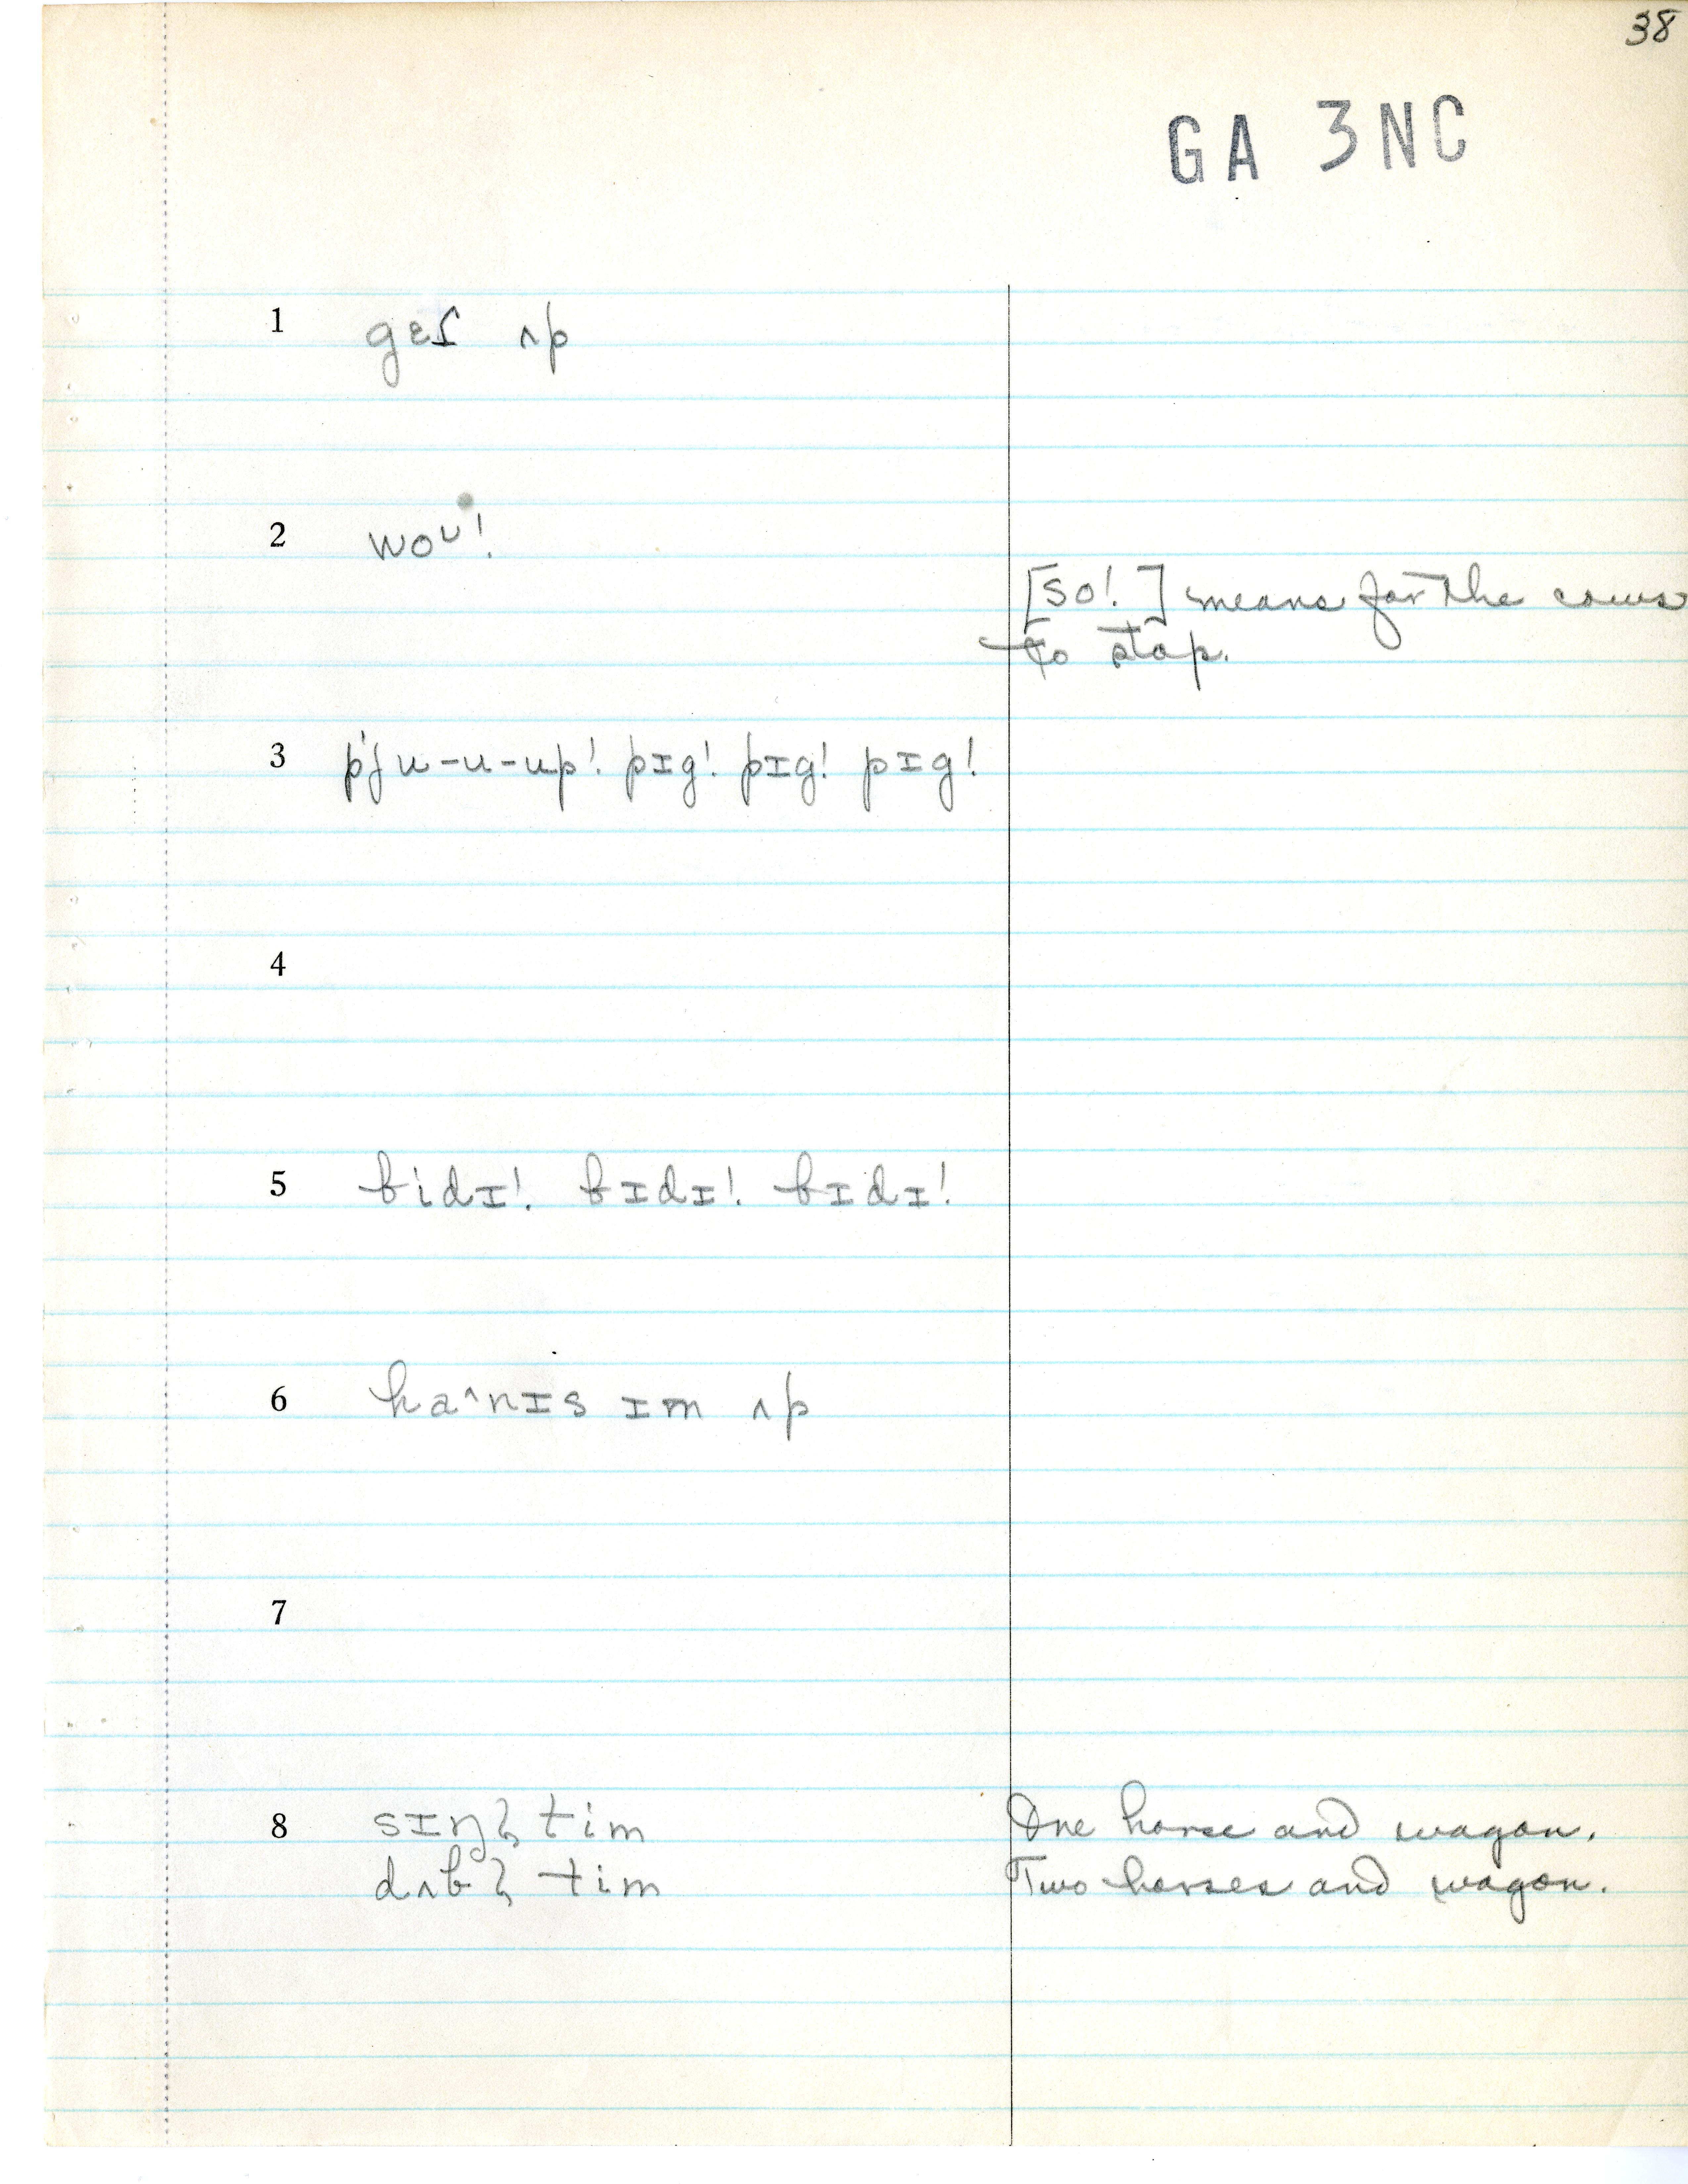 38
GA 3NC
1 gɛɾ ʌp
2 woᴜ!
[so!] means for the cows
to stop.
3 p'ju-u-up! pɪg! pɪg! pɪg!
4
5 bidɪ! bɪdɪ! bɪdɪ!
6 ha^nɪs ɪm ʌp
7
8 sɪŋɫ tim One horse and wagon.
dʌbɫ tim Two horses and wagon.